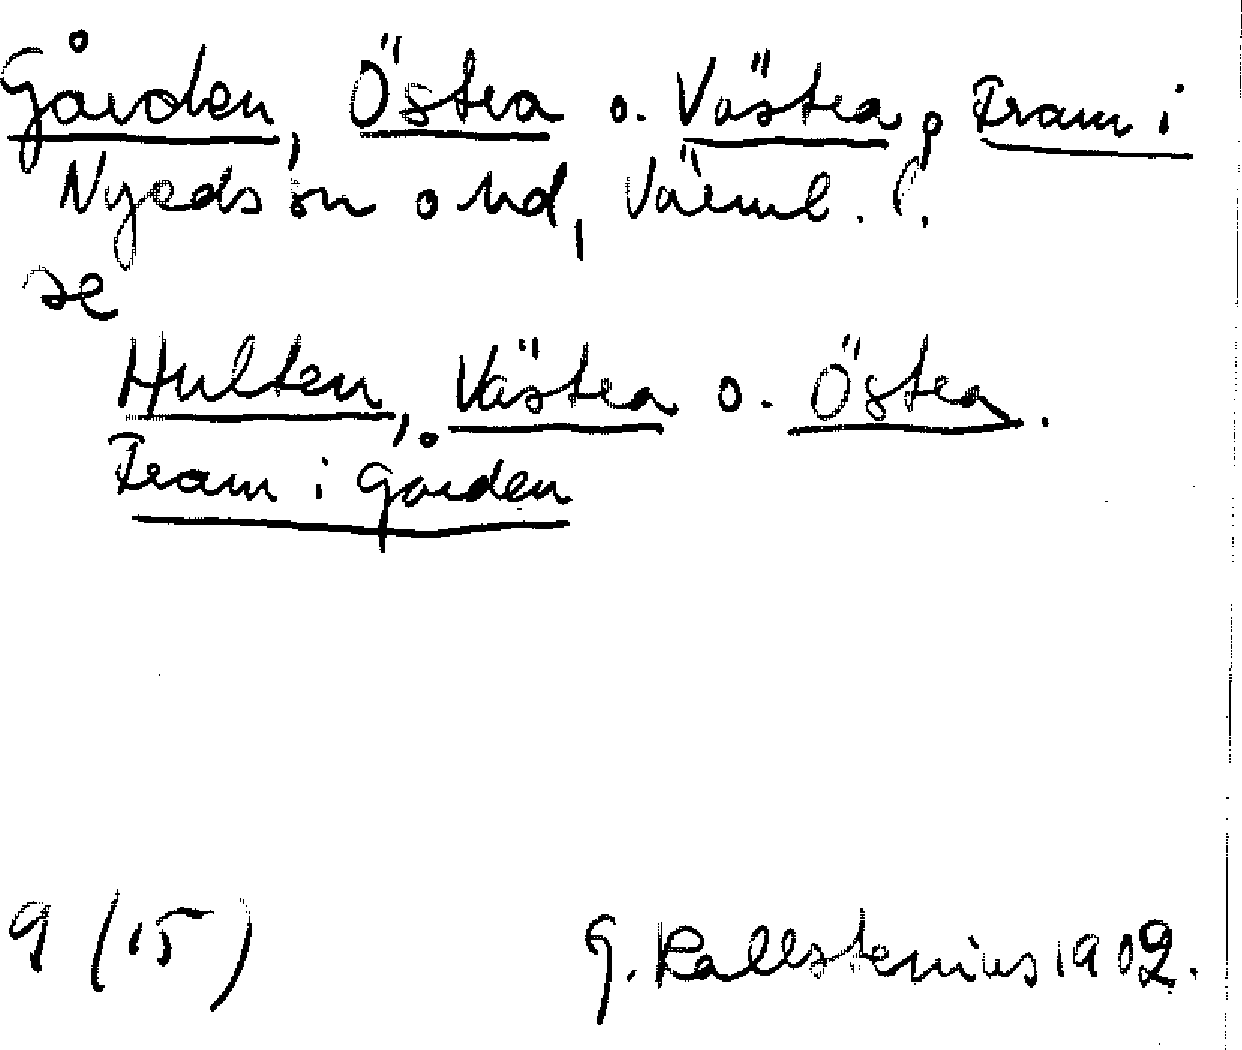 Gården, Östra o. Västra, Fram i
Nyeds sn o hd, Värml. l.
se
Hulten, Västra o. Östra.
Fram i gården
9 (15)
G. Kallstenius 1902.